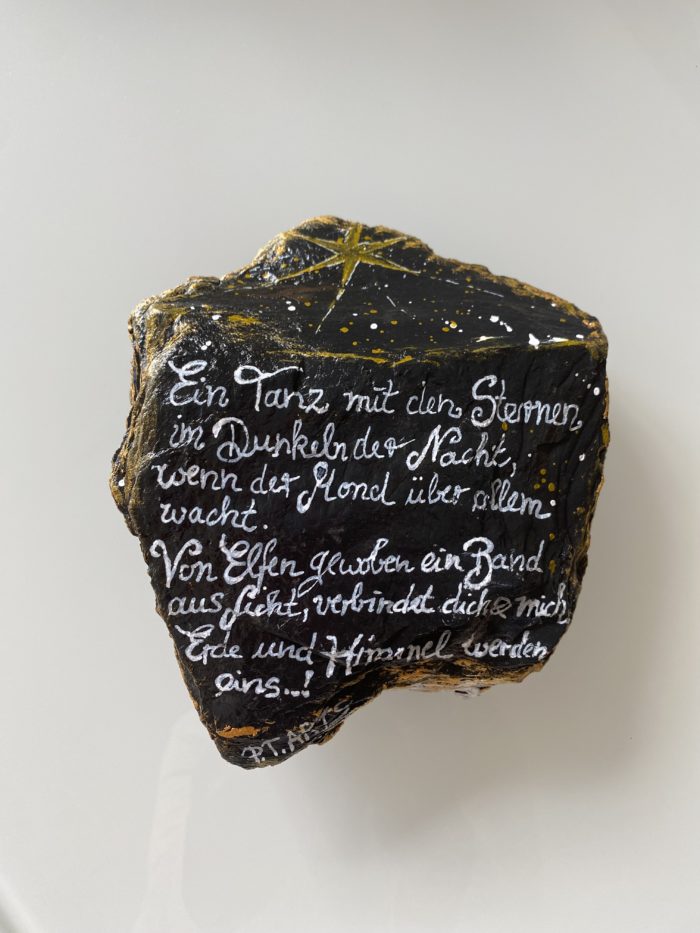 Ein Tanz mit den Sternen
im Dunkeln der Nacht,
wenn der Mond über allem
wacht.
Von Elfen gewoben ein Band
aus Licht, verbindet dich & mich,
Erde und Himmel werden
eins..!
P.T.ARTS